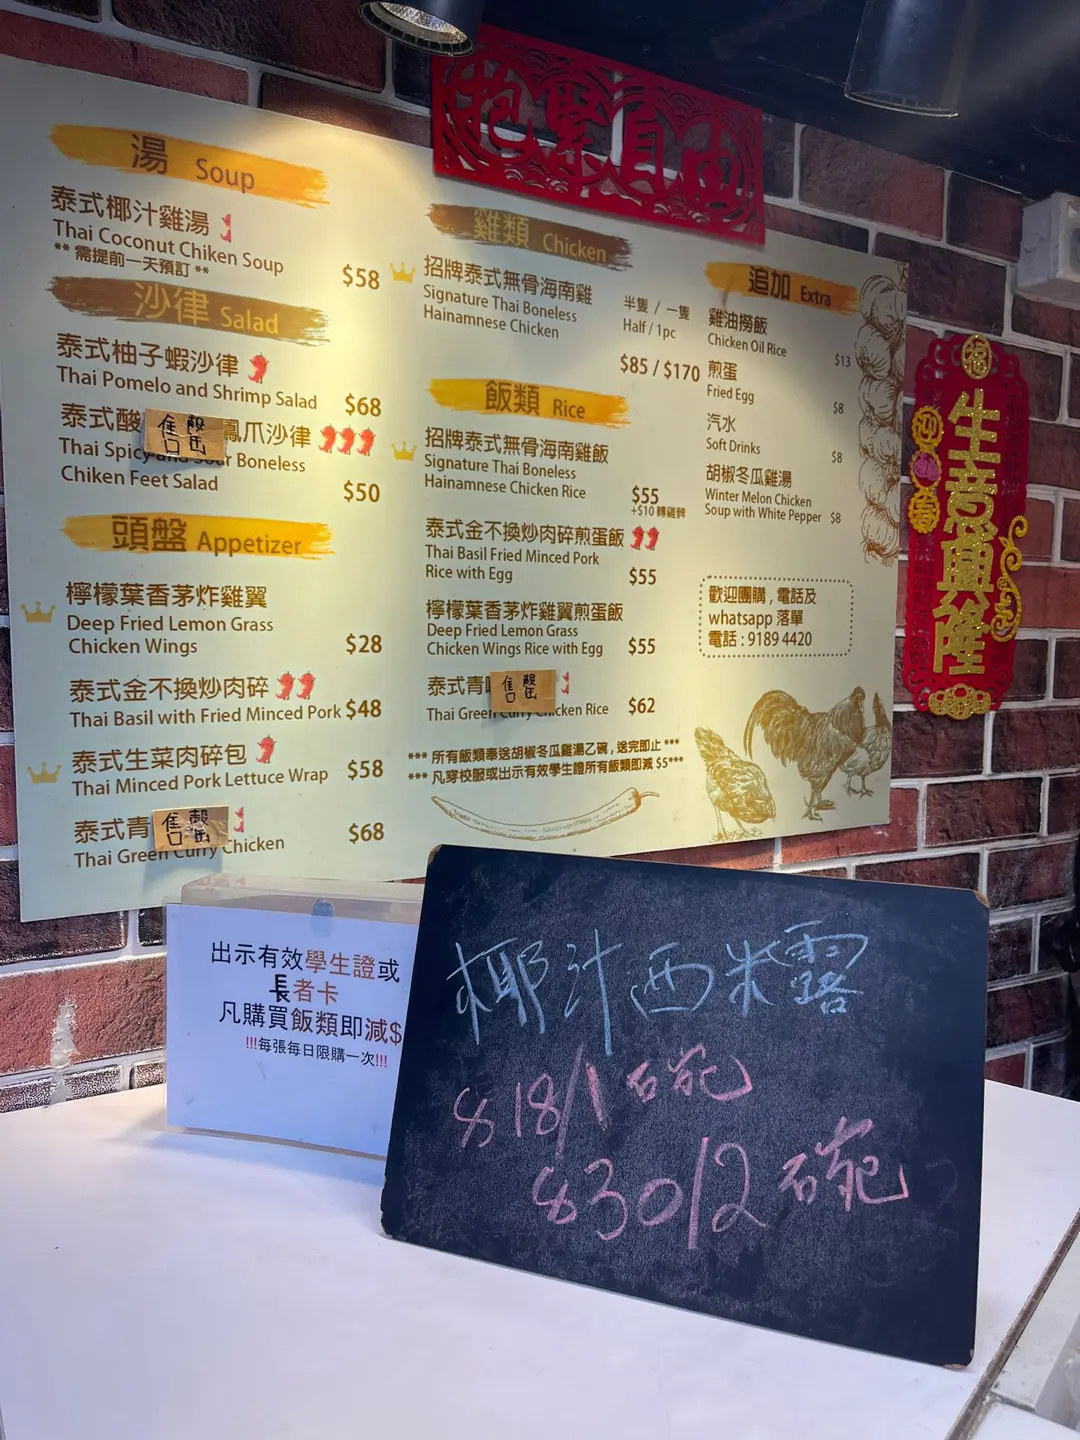 抱緊自由
湯 Soup
泰式椰汁雞湯
Thai Coconut Chiken Soup
** 需提前一天預訂 **
$58
沙律 Salad
泰式柚子蝦沙律
Thai Pomelo and Shrimp Salad $68
泰式酸 售罄 鳳爪沙律
Thai Spicy and Sour Boneless
Chiken Feet Salad $50
頭盤 Appetizer
檸檬葉香茅炸雞翼
Deep Fried Lemon Grass
Chicken Wings $28
泰式金不換炒肉碎
Thai Basil with Fried Minced Pork $48
泰式生菜肉碎包
Thai Minced Pork Lettuce Wrap $58
泰式青 售罄
Thai Green Curry Chicken $68
雞類 Chicken
招牌泰式無骨海南雞
Signature Thai Boneless
Hainamnese Chicken
半隻 / 一隻
Half / 1pc
$85 / $170
飯類 Rice
招牌泰式無骨海南雞飯
Signature Thai Boneless
Hainamnese Chicken Rice $55
+$10 轉雞髀
泰式金不換炒肉碎煎蛋飯
Thai Basil Fried Minced Pork
Rice with Egg $55
檸檬葉香茅炸雞翼煎蛋飯
Deep Fried Lemon Grass
Chicken Wings Rice with Egg $55
泰式青 售罄
Thai Green Curry Chicken Rice $62
*** 所有飯類奉送胡椒冬瓜雞湯乙碗 , 送完即止 ***
*** 凡穿校服或出示有效學生證所有飯類即減 $5***
追加 Extra
雞油撈飯
Chicken Oil Rice $13
煎蛋
Fried Egg $8
汽水
Soft Drinks $8
胡椒冬瓜雞湯
Winter Melon Chicken
Soup with White Pepper $8
歡迎團購 , 電話及
whatsapp 落單
電話 : 9189 4420
福
迎春
生意興隆
出示有效學生證或
長者卡
凡購買飯類即減$
!!!每張每日限購一次!!!
椰汁西米露
$18/1碗
$30/2碗